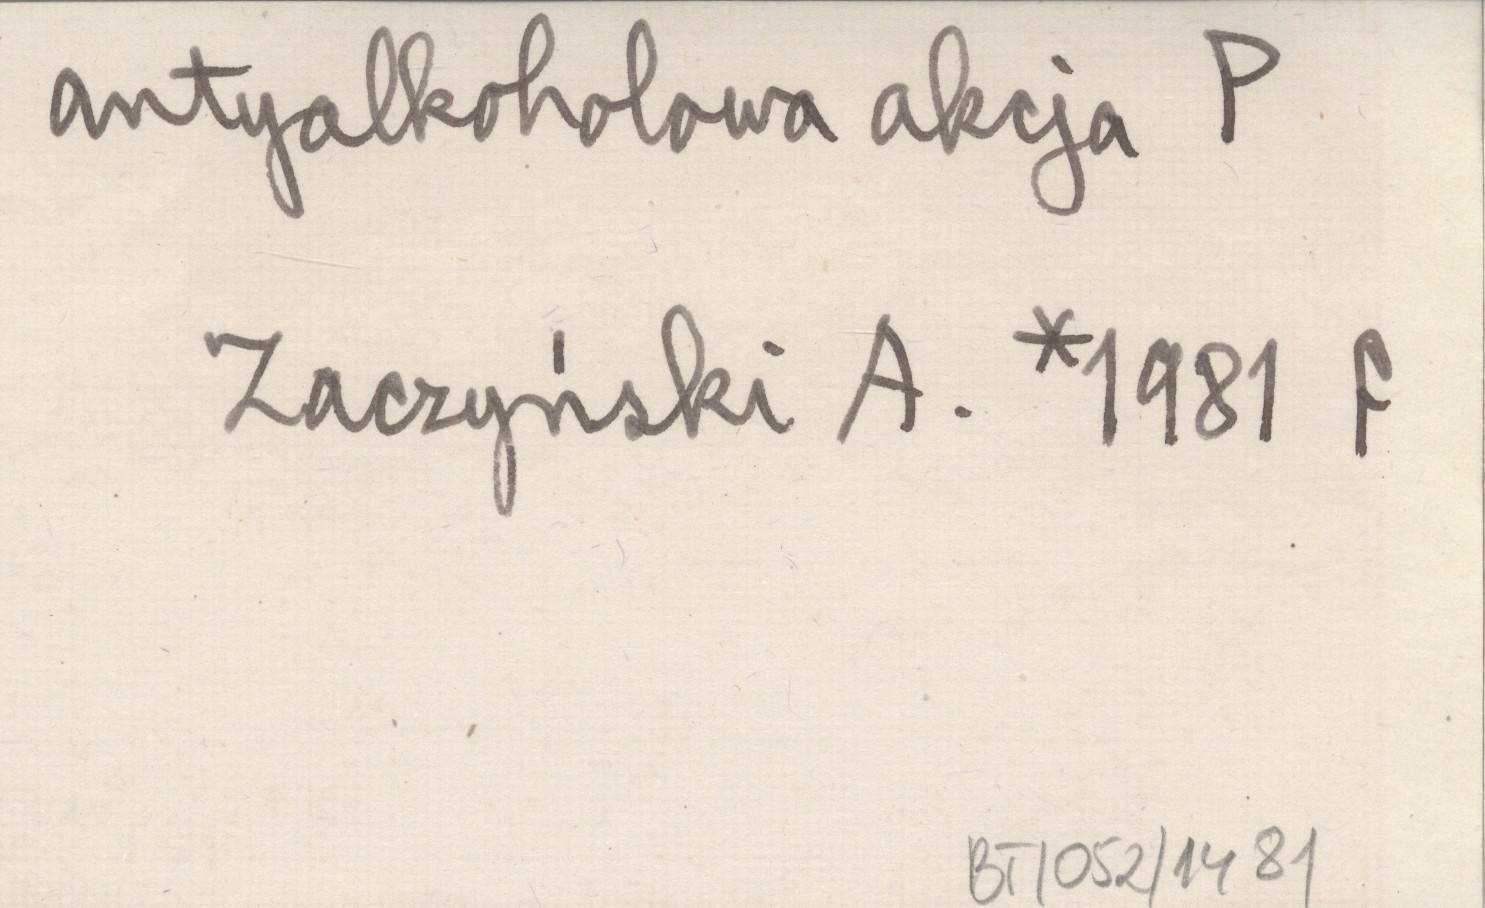 antyalkoholowa akcja P
Zaczyński A. *1981 f
BT/052/1481